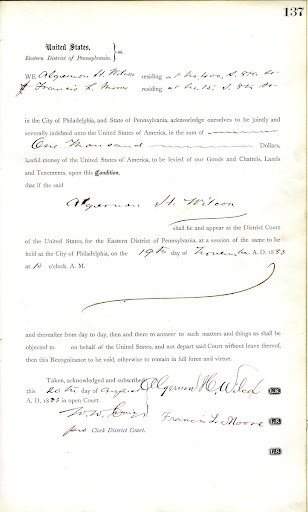 137
United States,
Eastern District of Pennsylvania. } ss.
WE Algernon H. Wilcox residing at No. 400, S. 8th St
& Francis L. Moore residing at No. 15, S. 8th St
in the City of Philadelphia, and State of Pennsylvania, acknowledge ourselves to be jointly and
severally indebted unto the United States of America, in the sum of
One Thousand Dollars,
lawful money of the United States of America, to be levied of our Goods and Chattels, Lands
and Tenements, upon this Condition,
that if the said
Algernon H. Wilcox
shall be and appear at the District Court
of the United States, for the Eastern District of Pennsylvania, at a session of the same to be
held at the City of Philadelphia, on the 19th day of November A. D. 1883
at 10 o'clock, A. M.
and thereafter from day to day, then and there to answer to such matters and things as shall be
objected to on behalf of the United States, and not depart said Court without leave thereof,
then this Recognizance to be void, otherwise to remain in full force and virtue.
Taken, acknowledged and subscribed
this 20th day of August Algernon H. Wilcox L.S.
A. D. 1883 in open Court.
W. W. Craig Francis L. Moore L.S.
Clerk District Court.
L.S.